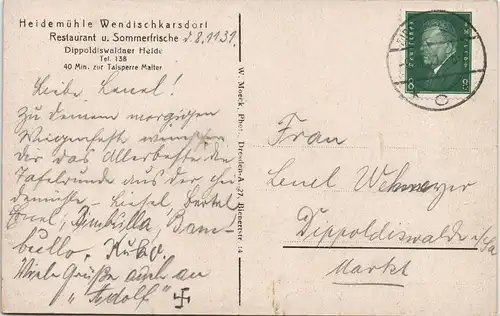 Heidemühle Wendischkarsdorf
Restaurant u. Sommerfrische
Dippoldiswaldaer Heide
Tel. 138
40 Min. zur Talsperre Malter
d. 8.11.31.
Liebe Lenel!
Zu deinem morgigen
Wiegenfeste wünschen
dir das Allerbeste die
Tafelrunde aus der Hei
demühle - Liesel, Bertel
Bim-
bullo, Kubo.
Viele Grüße auch an
"Adolf" 卐
W. Moeck, Phot., Dresden-A. 27, Bienertstr. 14
Deutsches Reich
8 8
Frau
Lenel Wehmeyer
Dippoldiswalde i/Sa
Markt